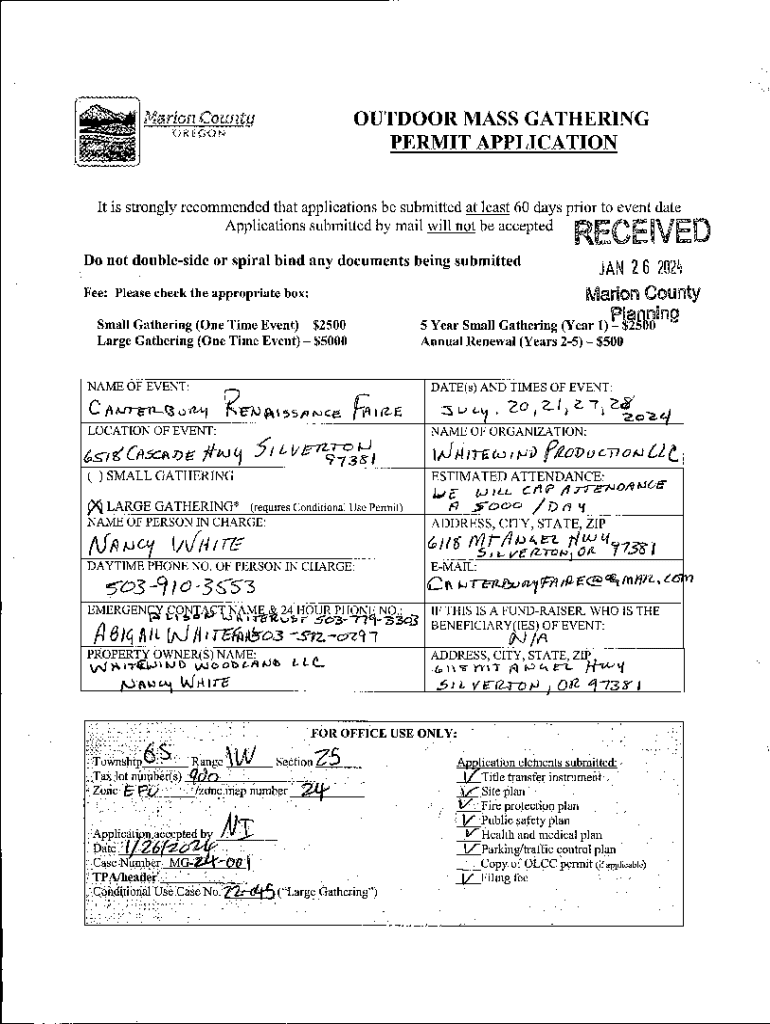 Marion County
OREGON
OUTDOOR MASS GATHERING
PERMIT APPLICATION
It is strongly recommended that applications be submitted at least 60 days prior to event date
Applications submitted by mail will not be accepted
RECEIVED
JAN 26 2024
Marion County
Planning
Do not double-side or spiral bind any documents being submitted
Fee: Please check the appropriate box:
Small Gathering (One Time Event) – $2500
5 Year Small Gathering (Year 1) – $2500
Large Gathering (One Time Event) – $5000
Annual Renewal (Years 2-5) – $500
NAME OF EVENT:
CANTERBURY RENAISSANCE FAIRE
DATE(s) AND TIMES OF EVENT:
JULY. 20, 21, 27, 28
2024
LOCATION OF EVENT:
6518 CASCADE HWY SILVERTON
97381
NAME OF ORGANIZATION:
WHITEWIND PRODUCTION LLC
( ) SMALL GATHERING
(X) LARGE GATHERING* (requires Conditional Use Permit)
ESTIMATED ATTENDANCE:
WE WILL CAP ATTENDANCE
A 5000 / DAY
NAME OF PERSON IN CHARGE:
NANCY WHITE
ADDRESS, CITY, STATE, ZIP
6118 MT ANGEL HWY
SILVERTON, OR 97381
DAYTIME PHONE NO. OF PERSON IN CHARGE:
503-910-3553
E-MAIL:
CANTERBURYFAIRE@GMAIL.COM
EMERGENCY CONTACT NAME & 24 HOUR PHONE NO.:
503-779-3303
ABIGAIL 503-512-0297
IF THIS IS A FUND-RAISER, WHO IS THE
BENEFICIARY(IES) OF EVENT:
N/A
PROPERTY OWNER(S) NAME:
WHITEWIND WOODLAND LLC
NANCY WHITE
ADDRESS, CITY, STATE, ZIP
6118 MT ANGEL HWY
SILVERTON, OR 97381
FOR OFFICE USE ONLY:
Township 6S Range 1W Section 25
Tax lot number(s) 900
Zone EFU /zone map number 24
Application accepted by NI
Date 1/26/2024
Case Number MG-24-001
TPA/header
Conditional Use Case No. 22-045 ("Large Gathering")
Application elements submitted:
Title transfer instrument
Site plan
Fire protection plan
Public safety plan
Health and medical plan
Parking/traffic control plan
Copy of OLCC permit (if applicable)
Filing fee